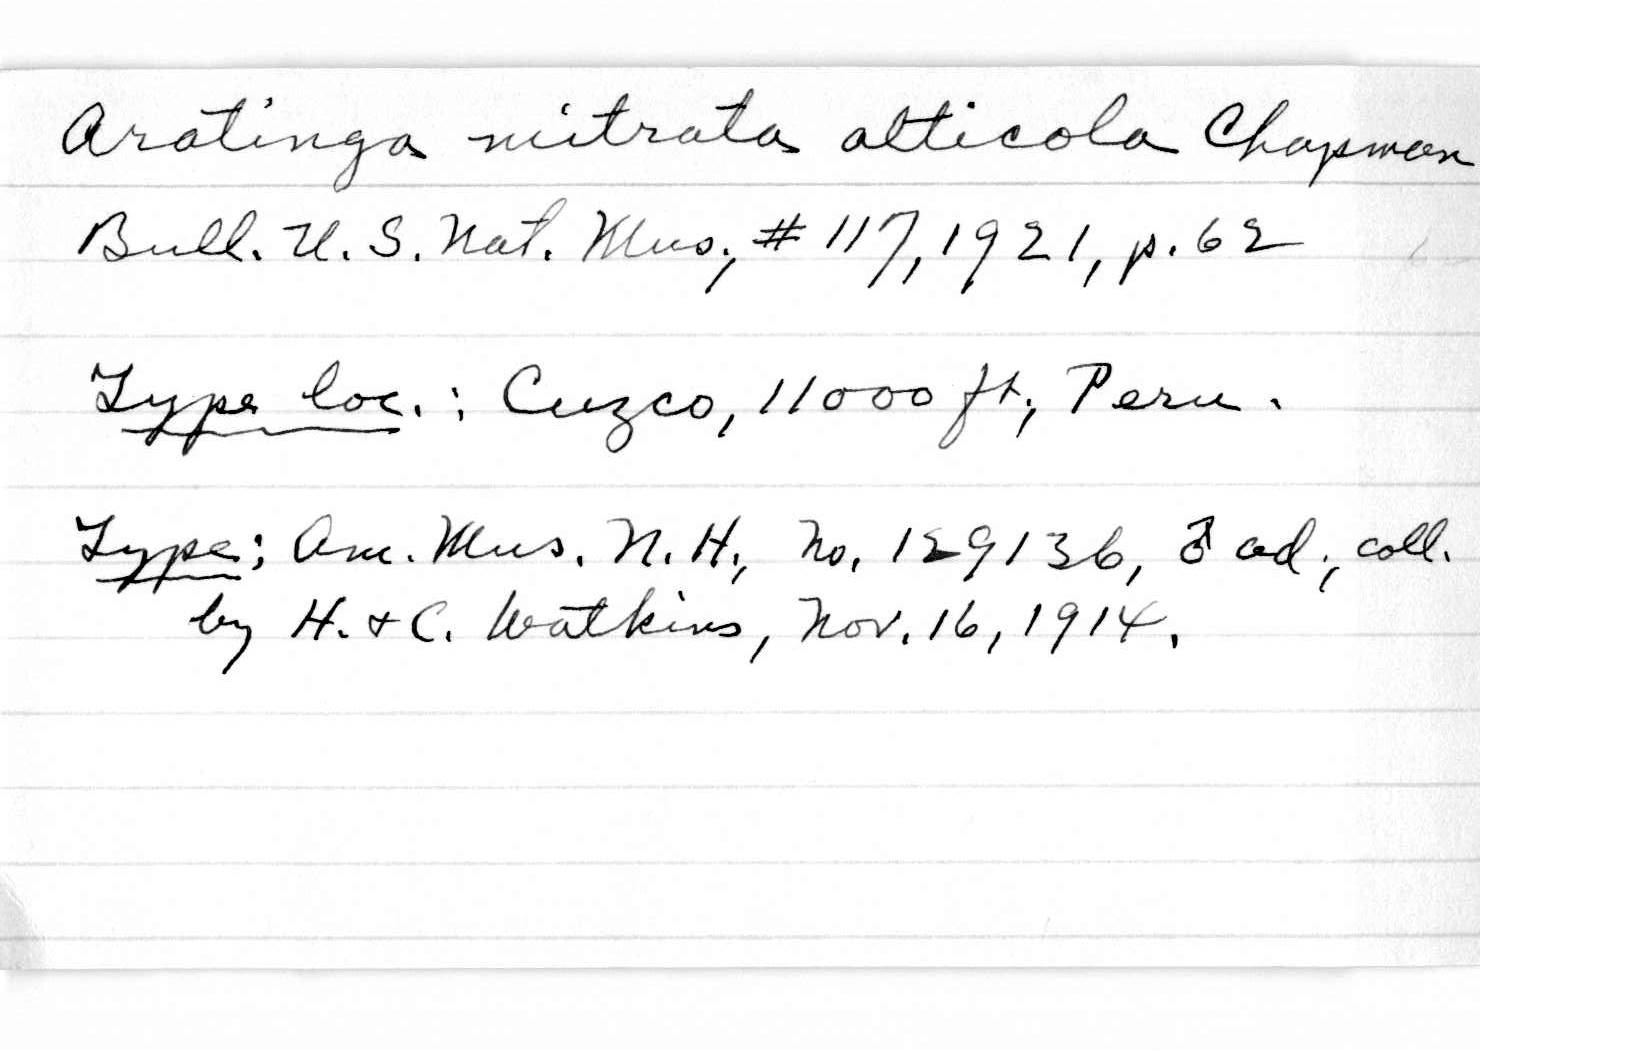 Aratinga mitrata alticola Chapman
Bull. U. S. Nat. Mus., # 117, 1921, p. 62
Type loc. : Cuzco, 11000 ft., Peru.
Type; Am. Mus. N. H., No. 129136, ♂ ad., coll.
by H. + C. Watkins, Nov. 16, 1914.